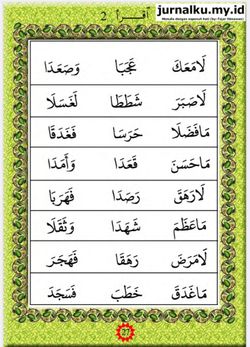 jurnalku.my.id
Menulis dengan sepenuh hati (by: Fajar Setyawan)
اقرأ 2
لَامَعَكَ عَجَبَا وَصَعَدَا
لَاصَبَرَ شَطَطَا لَغَسَلَا
مَافَضَلَا حَرَسَا فَغَدَقَا
مَاحَسَنَ قَعَدَا وَأَمَدَا
لَارَهَقَ رَصَدَا فَهَرَبَا
مَاعَظَمَ شَهَدَا وَثَقَلَا
لَامَرَضَ رَهَقَا فَهَجَرَ
مَاغَدَقَ خَطَبَ فَسَجَدَ
27